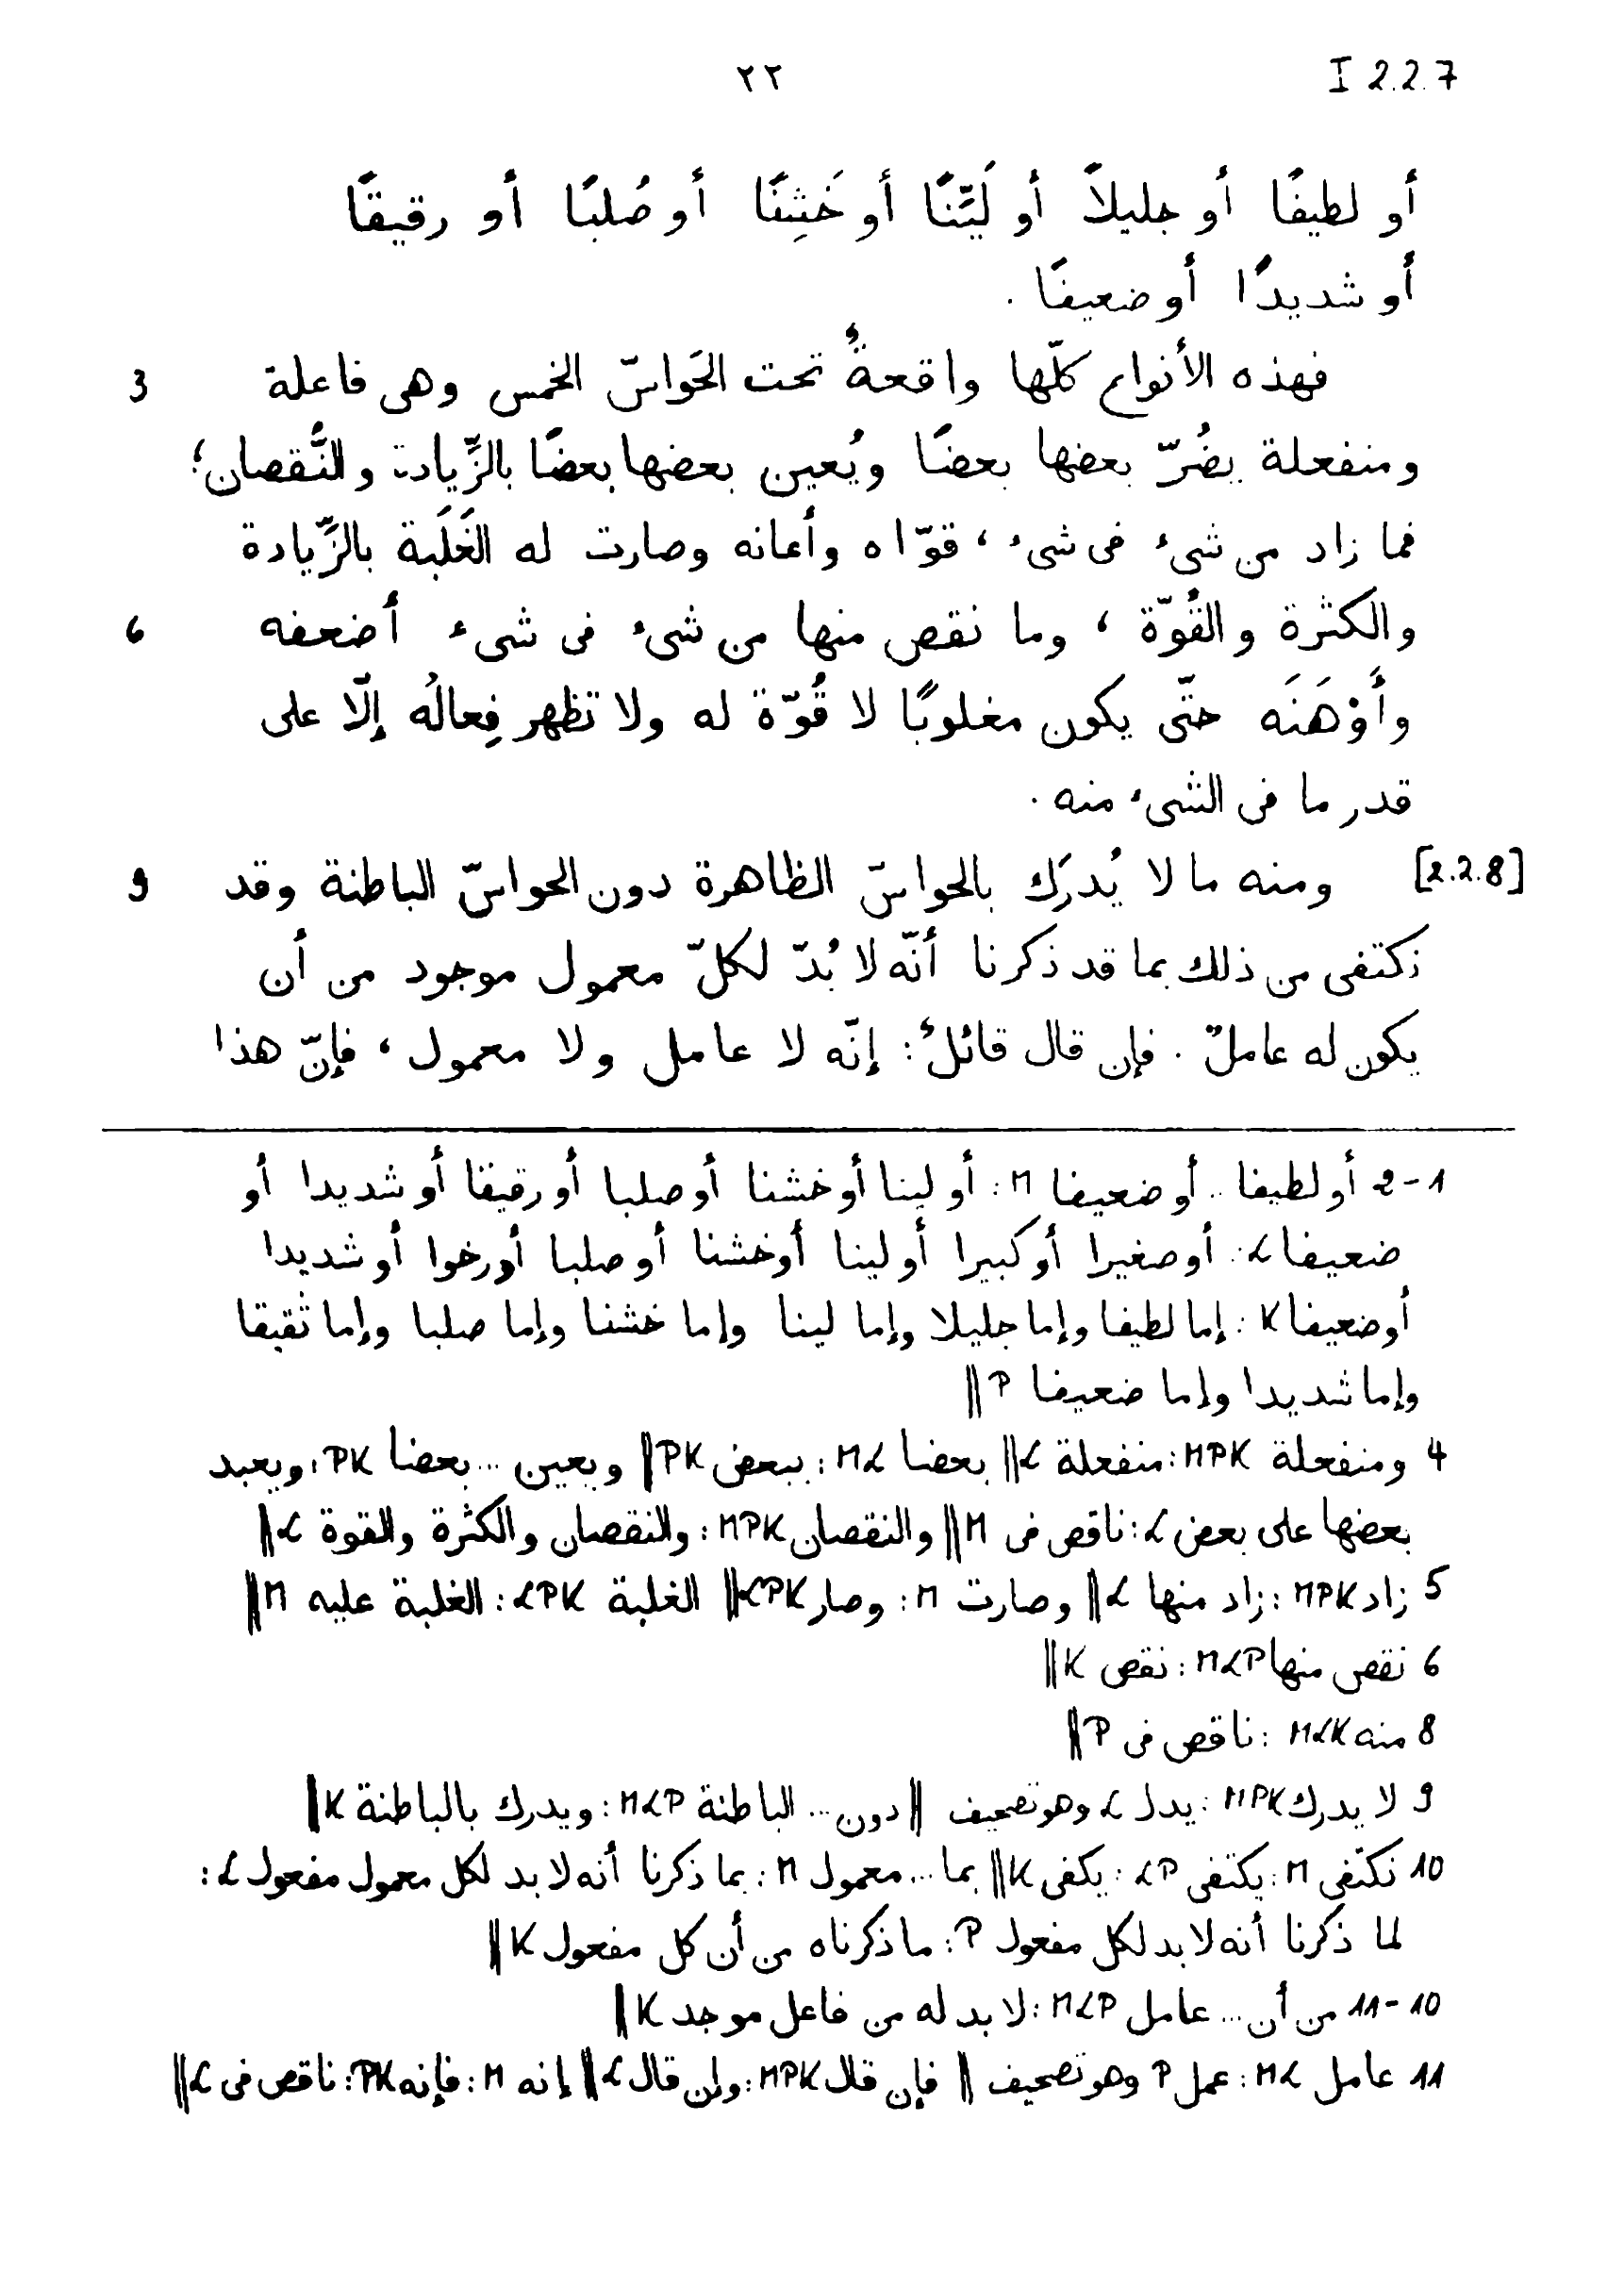 I 2.2.7 ٢٢
أو لطيفًا أو جليلاً أو لَيّنًا أو خَشِنًا أو صُلبًا أو رقيقًا
أو شديدًا أو ضعيفًا .
فهذه الأنواع كلّها واقعةٌ تحت الحَواسّ الخمس وهى فاعلة 3
ومنفعلة يضُرّ بعضها بعضًا ويُعين بعضها بعضًا بالزِّيادة والنُّقصان؛
فما زاد من شىء فى شىء ، قوّاه وأعانه وصارت له الغَلَبة بالزِّيادة
والكثرة والقُوّة ، وما نقص منها من شىء فى شىء أضعفه 6
وأَوْهَنَه حتّى يكون مغلوبًا لا قُوّة له ولا تظهر فِعالُه إلّا على
قدر ما فى الشىء منه .
[2.2.8] ومنه ما لا يُدرَك بالحواسّ الظاهرة دون الحواسّ الباطنة وقد 9
نكتفى من ذلك بما قد ذكرنا أنّه لا بُدّ لكلّ معمول موجود من أن
يكون له عاملٌ . فإن قال قائلٌ : إنّه لا عامل ولا معمول ، فإنّ هذا
1-2 أو لطيفا .. أو ضعيفا M : أو لينا أو خشنا أو صلبا أو رقيقا أو شديدا أو
ضعيفا L : أو صغيرا أو كبيرا أو لينا أو خشنا أو صلبا أو رخوا أو شديدا
أو ضعيفا K : إما لطيفا وإما جليلا وإما لينا وإما خشنا وإما صلبا وإما ثقيقا
وإما شديدا وإما ضعيفا P ||
4 ومنفعلة MPK : منفعلة L || بعضا ML : ببعض PK || ويعين ... بعضا PK : ويعبد
بعضها على بعض L : ناقص فى M || والنقصان MPK : والنقصان والكثرة والقوة L ||
5 زاد MPK : زاد منها L || وصارت M : وصار LPK || الغلبة LPK : الغلبة عليه M ||
6 نقص منها MLP : نقص K ||
8 منه MLK : ناقص فى P ||
9 لا يدرك MPK : يدل L وهو تصحيف || دون ... الباطنة MLP : ويدرك بالباطنة K ||
10 نكتفى M : يكتفى LP : يكفى K || بما ... معمول M : بما ذكرنا أنه لا بد لكل معمول مفعول L :
لما ذكرنا أنه لا بد لكل مفعول P : ما ذكرناه من أن كل مفعول K ||
10-11 من أن ... عامل MLP : لا بد له من فاعل موجد K ||
11 عامل ML : عمل P وهو تصحيف || فإن قال MPK : وإن قال L || إنه M : فإنه PK : ناقص فى L ||